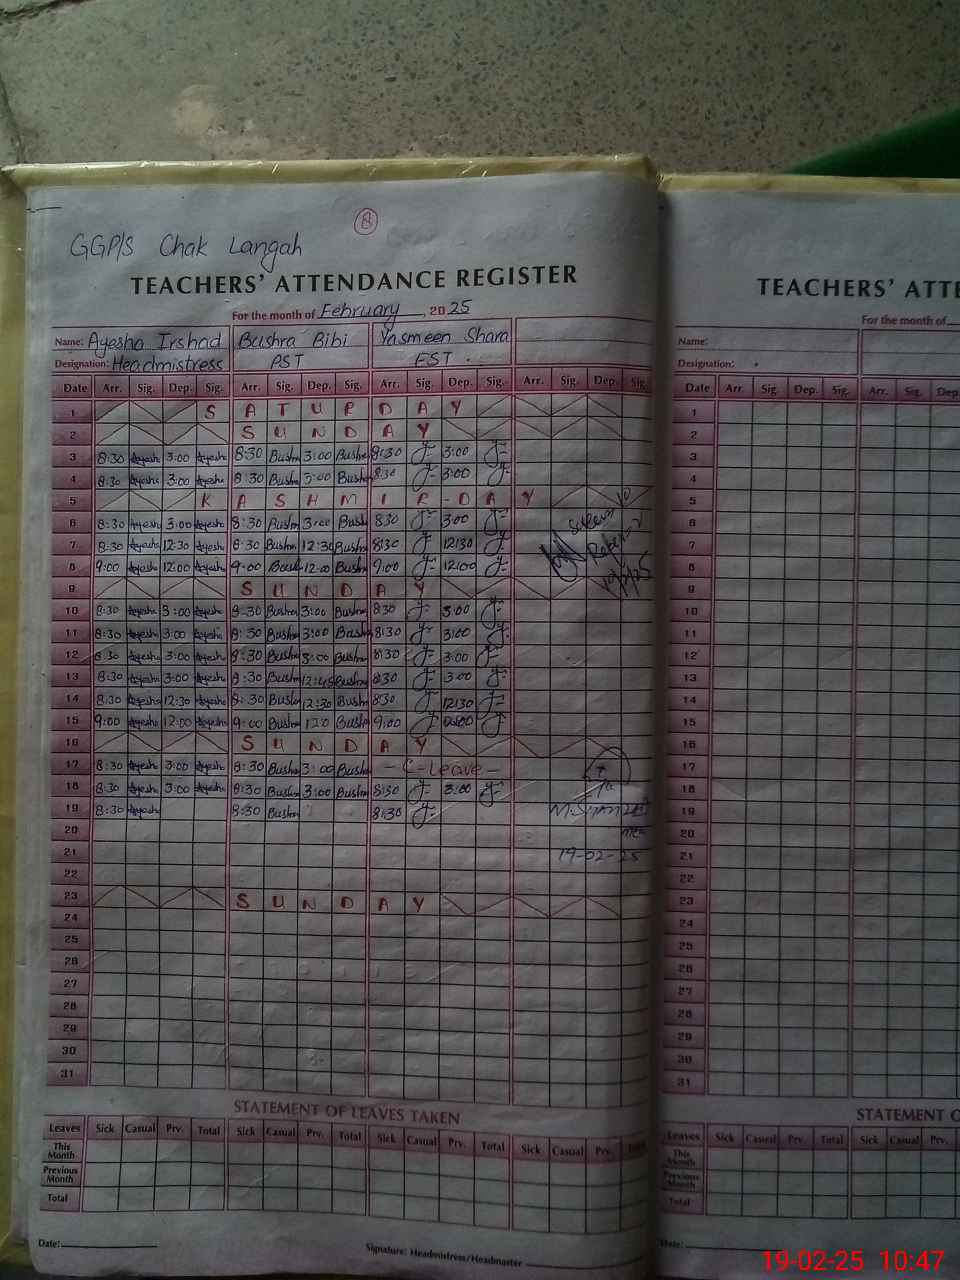 8
GGP/S Chak Langah
TEACHERS' ATTENDANCE REGISTER
For the month of February, 2025
Name: Ayesha Irshad Bushra Bibi Yasmeen Shara
Designation: Headmistress PST EST
Date Arr. Sig. Dep. Sig. Arr. Sig. Dep. Sig. Arr. Sig. Dep. Sig. Arr. Sig. Dep. Sig.
1 SATURDAY
2 SUNDAY
3 8:30 Ayesha 3:00 Ayesha 8:30 Bushra 3:00 Bushra 8:30 3:00
4 8:30 Ayesha 3:00 Ayesha 8:30 Bushra 3:00 Bushra 8:30 3:00
5 KASHMIR-DAY
6 8:30 Ayesha 3:00 Ayesha 8:30 Bushra 3:00 Bush 8:30 3:00
7 8:30 Ayesha 12:30 Ayesha 8:30 Bushra 12:30 Bushra 8:30 12:30
8 9:00 Ayesha 12:00 Ayesha 9:00 Bush 12:00 Bushra 9:00 12:00
9 SUNDAY
10 8:30 Ayesha 3:00 Ayesha 8:30 Bushra 3:00 Bushra 8:30 3:00
11 8:30 Ayesha 3:00 Ayesha 8:30 Bushra 3:00 Bushra 8:30 3:00
12 8:30 Ayesha 3:00 Ayesha 8:30 Bushra 3:00 Bushra 8:30 3:00
13 8:30 Ayesha 3:00 Ayesha 8:30 Bushra 12:45 Bushra 8:30 3:00
14 8:30 Ayesha 12:30 Ayesha 8:30 Bushra 12:30 Bushra 8:30 12:30
15 9:00 Ayesha 12:00 Ayesha 9:00 Bushra 12:0 Bushra 9:00 12:00
16 SUNDAY
17 8:30 Ayesha 3:00 Ayesha 8:30 Bushra 3:00 Bushra - C-Leave -
18 8:30 Ayesha 3:00 Ayesha 8:30 Bushra 3:00 Bushra 8:30 3:00
19 8:30 Ayesha 8:30 Bushra 8:30
20
21 19-02-25
22
23 SUNDAY
24
25
26
27
28
29
30
31
STATEMENT OF LEAVES TAKEN
Leaves Sick Casual Prv. Total Sick Casual Prv. Total Sick Casual Prv. Total Sick Casual Prv.
This Month
Previous Month
Total
Date:
Signature: Headmistress/Headmaster
TEACHERS' ATTE
For the month of
Name:
Designation:
Date Arr. Sig. Dep. Sig. Arr. Sig. Dep
1
2
3
4
5
6
7
8
9
10
11
12
13
14
15
16
17
18
19
20
21
22
23
24
25
26
27
28
29
30
31
STATEMENT O
Leaves Sick Casual Prv. Total Sick Casual Prv.
This Month
Previous Month
Total
Date:
19-02-25 10:47